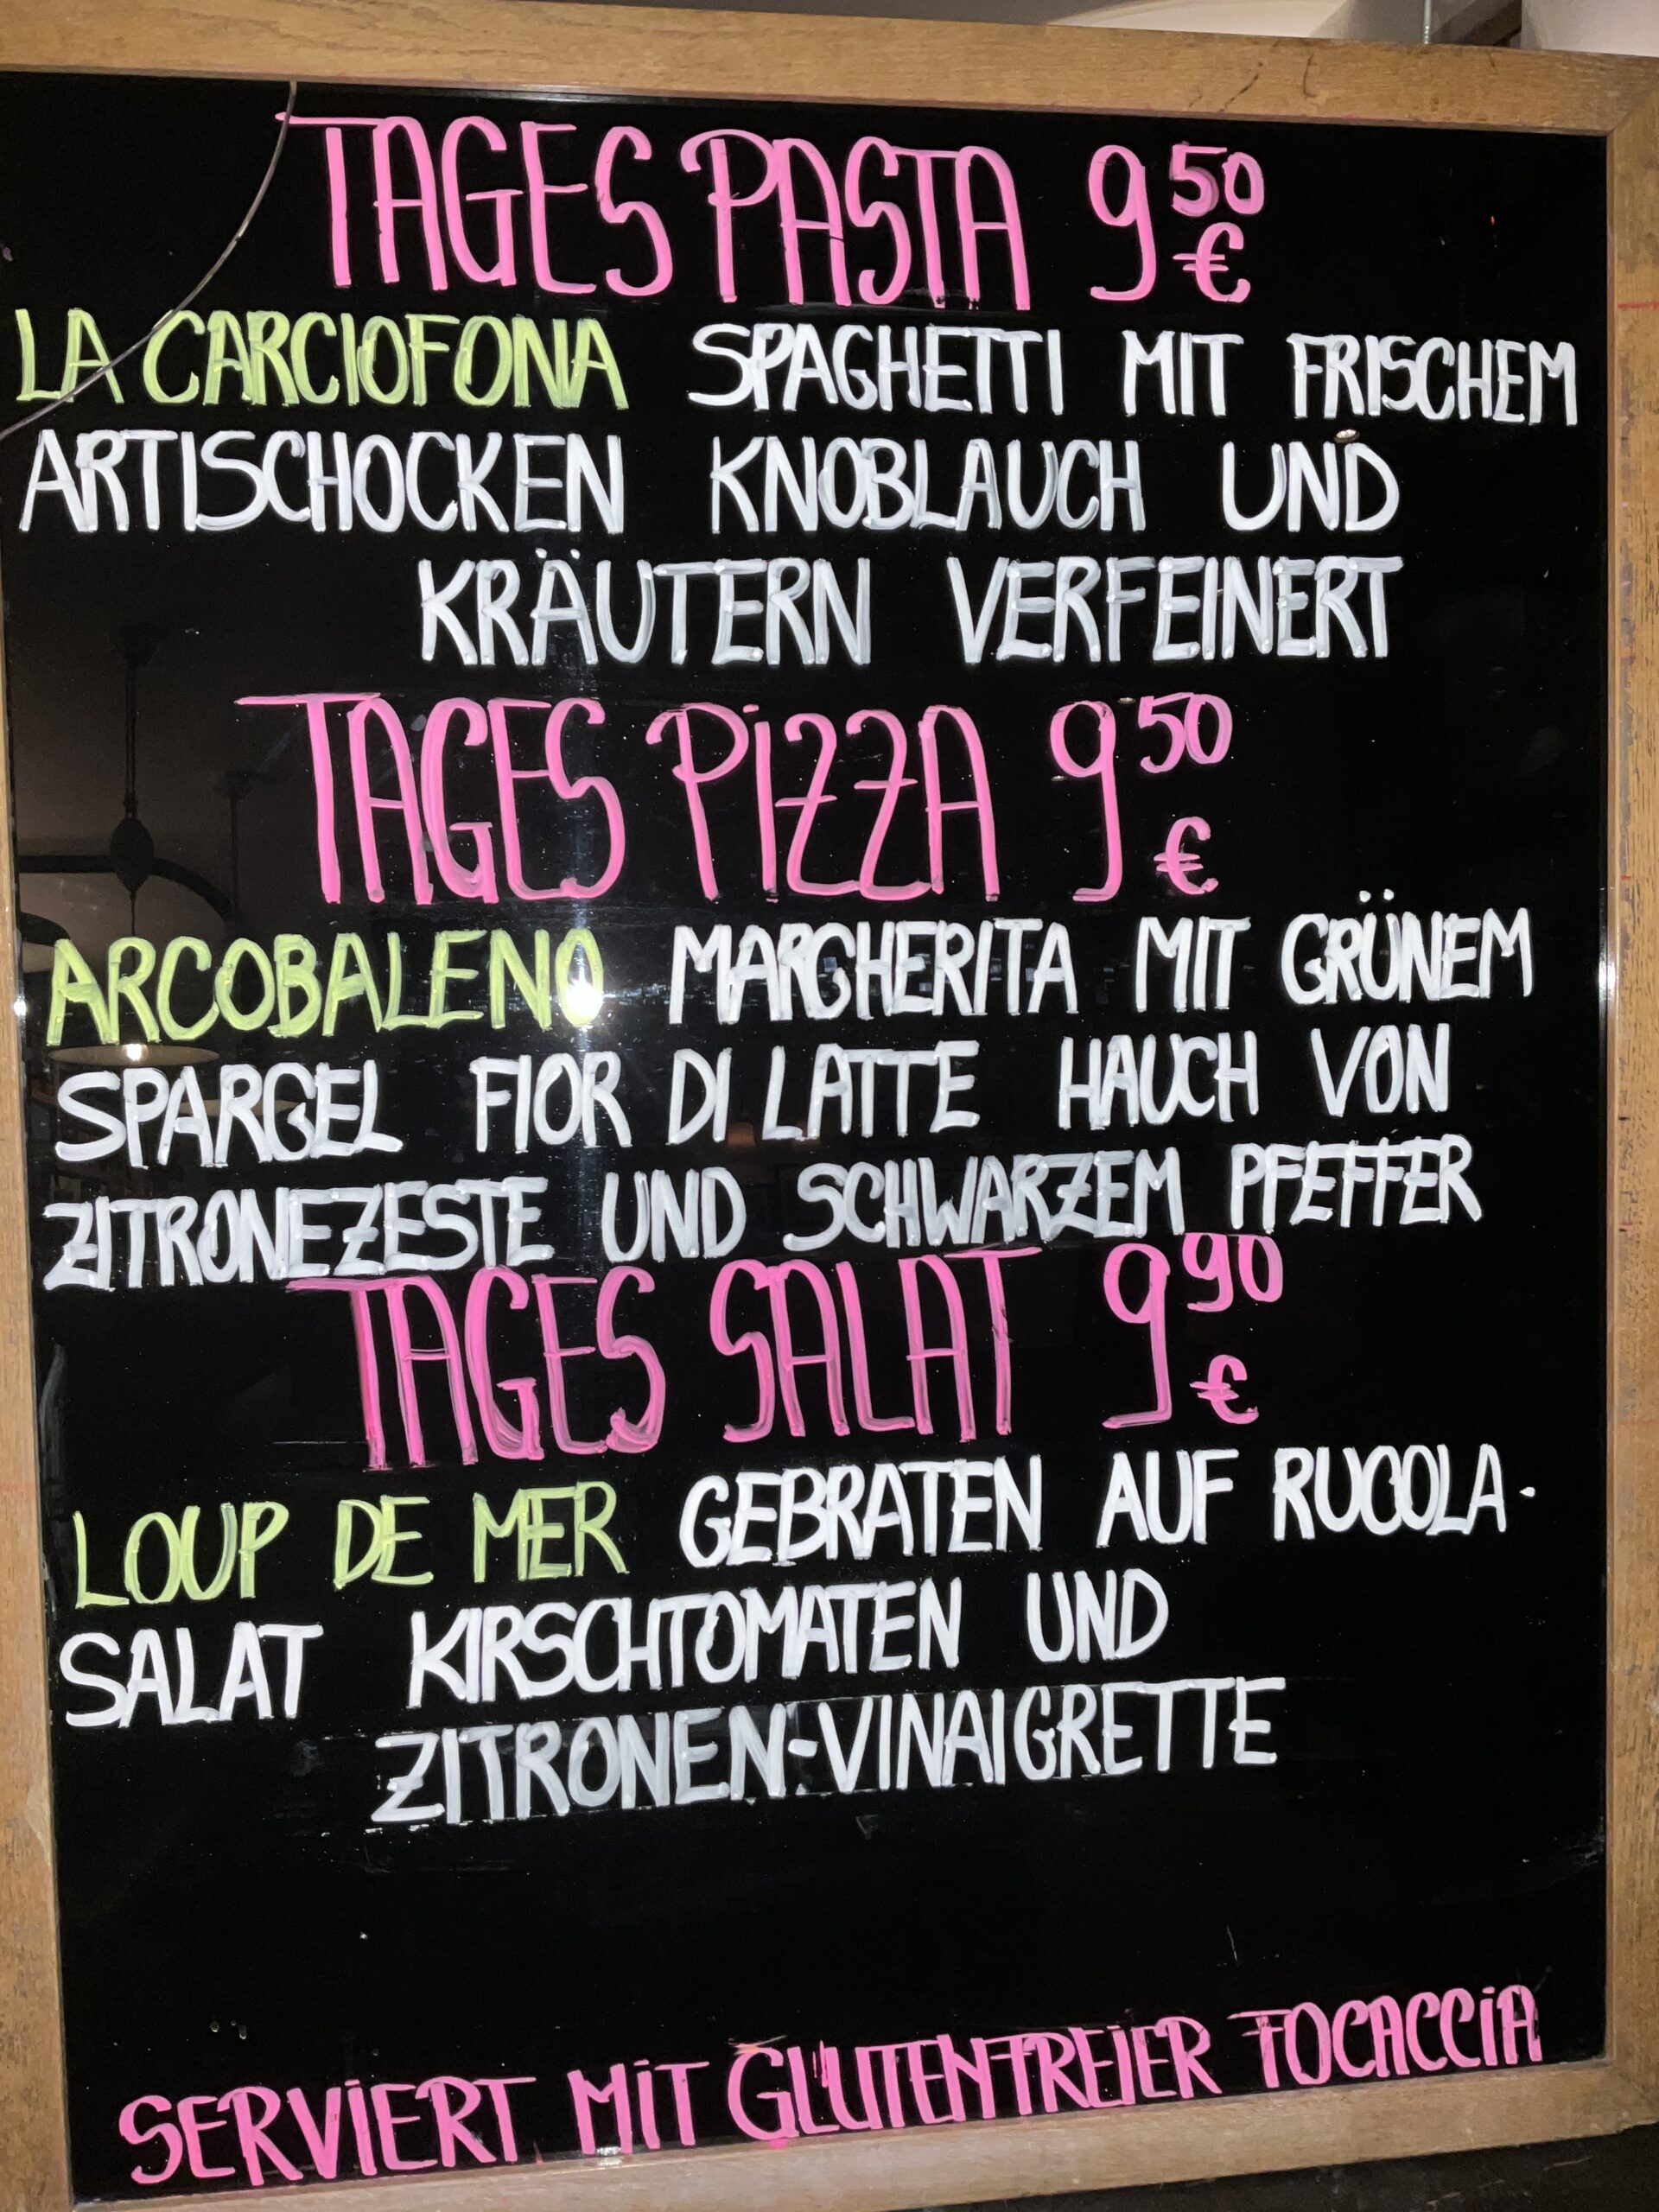 TAGES PASTA 9 50 €
LA CARCIOFONA SPAGHETTI MIT FRISCHEM
ARTISCHOCKEN KNOBLAUCH UND
KRÄUTERN VERFEINERT
TAGES PiZZA 9 50 €
ARCOBALENO MARGHERITA MIT GRÜNEM
SPARGEL FIOR DI LATTE HAUCH VON
ZITRONEZESTE UND SCHWARZEM PFEFFER
TAGES SALAT 9 90 €
LOUP DE MER GEBRATEN AUF RUCOLA-
SALAT KIRSCHTOMATEN UND
ZITRONEN-VINAIGRETTE
SERViERT MiT GLUTENFREiER FOCACCiA